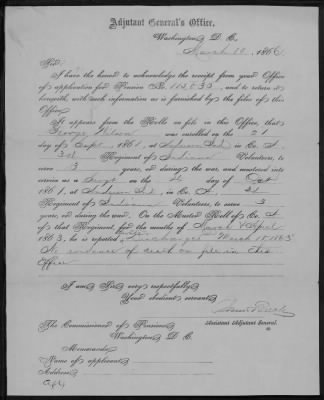 Adjutant General's Office,
Washington, D. C.
March 186
Sir:
I have the honor to acknowledge the receipt from your Office
of application for Pension No. and to return it
herewith, with such information as is furnished by the files of this
Office.
It appears from the Rolls on file in this Office, that
George was enrolled on the 21
day of Sept, 1861, at in Co.
3rd Regiment of Indiana Volunteers, to
serve 3 years, or during the war, and mustered into
service as a on the day of Oct
1861, at in Co.
Regiment of Indiana Volunteers, to serve 3
years, or during the war. On the Muster Roll of Co.
of that Regiment, for the months of March & April
1863, he is reported March 18 1863
No evidence of death on file in this
Office
I am Sir, very respectfully,
Your obedient servant,
Assistant Adjutant General.
The Commissioner of Pensions,
Washington, D. C.
Memoranda:
Name of applicant,
Address,